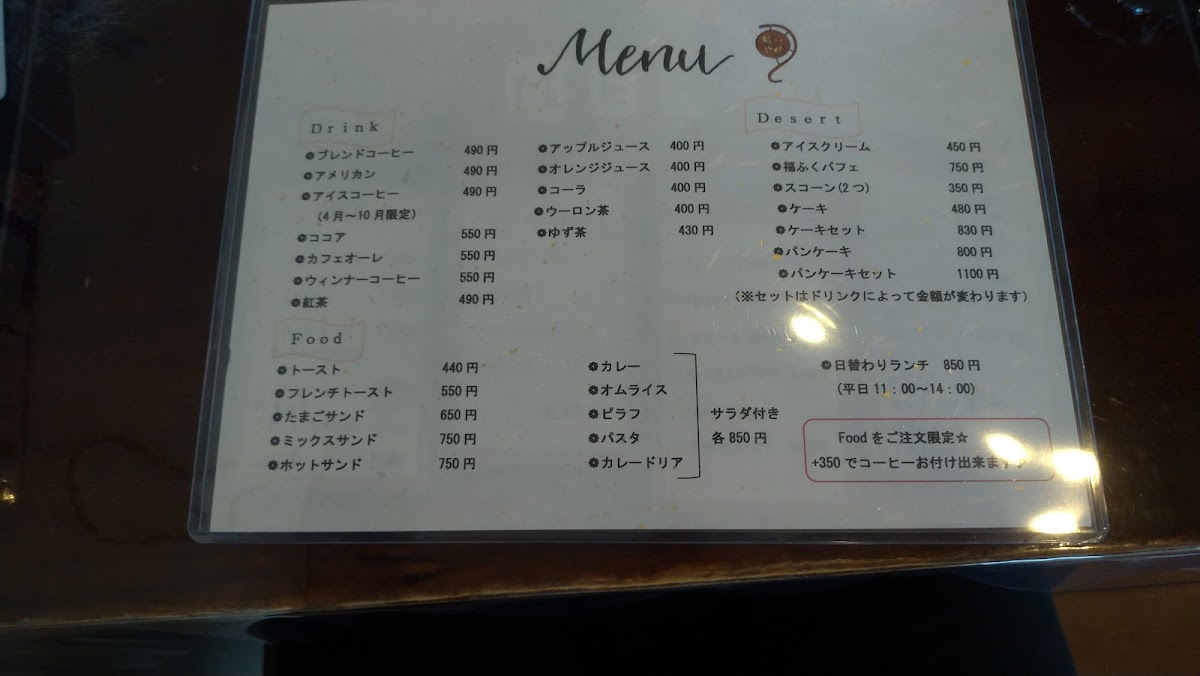 Menu
Drink
ブレンドコーヒー 490円
アメリカン 490円
アイスコーヒー 490円
(4月～10月限定)
ココア 550円
カフェオーレ 550円
ウィンナーコーヒー 550円
紅茶 490円
アップルジュース 400円
オレンジジュース 400円
コーラ 400円
ウーロン茶 400円
ゆず茶 430円
Desert
アイスクリーム 450円
福ふくパフェ 750円
スコーン(2つ) 350円
ケーキ 480円
ケーキセット 830円
パンケーキ 800円
パンケーキセット 1100円
(※セットはドリンクによって金額が変わります)
Food
トースト 440円
フレンチトースト 550円
たまごサンド 650円
ミックスサンド 750円
ホットサンド 750円
カレー
オムライス
ピラフ
パスタ
カレードリア
サラダ付き
各850円
日替わりランチ 850円
(平日11：00～14：00)
Foodをご注文限定☆
+350でコーヒーお付け出来ます♪